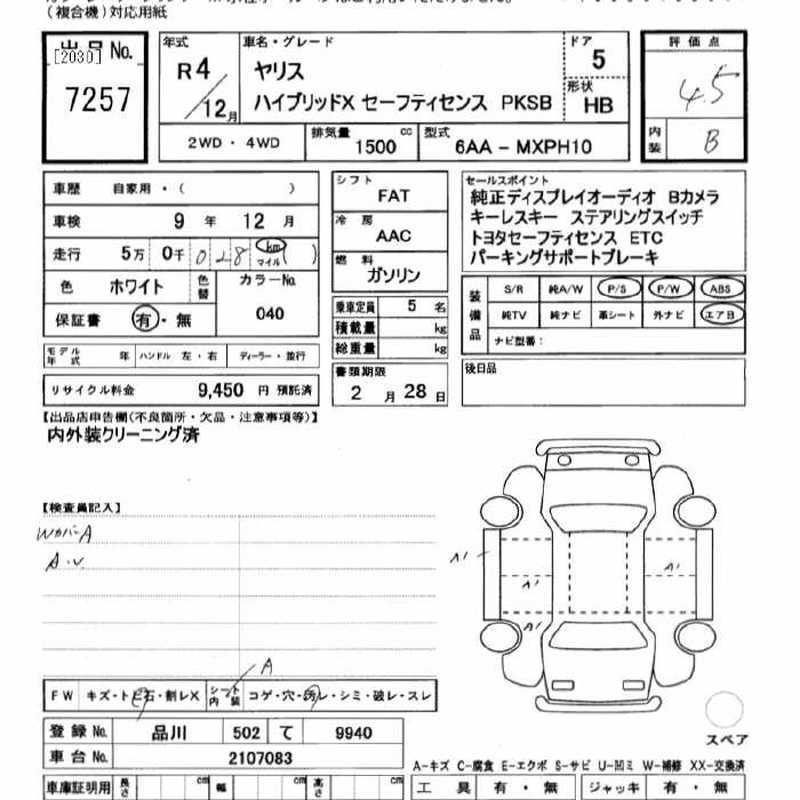 (複合機)対応用紙
出品 No.
[2030]
7257
年式
R4
12月
車名・グレード
ヤリス
ハイブリッドX セーフティセンス PKSB
ドア
5
形状
HB
評価点
4.5
内装
B
2WD・4WD
排気量
1500 cc
型式
6AA－MXPH10
車歴 自家用・( )
車検 9年 12月
走行 5万 0千 028 km マイル ( )
色 ホワイト
色替
カラーNo.
040
保証書 有・無
モデル年式 年 ハンドル 左・右 ディーラー・並行
リサイクル料金 9,450 円 預託済
シフト
FAT
冷房
AAC
燃料
ガソリン
乗車定員 5 名
積載量 kg
総重量 kg
書類期限
2月 28日
セールスポイント
純正ディスプレイオーディオ Bカメラ
キーレスキー ステアリングスイッチ
トヨタセーフティセンス ETC
パーキングサポートブレーキ
装備品
S/R 純A/W P/S P/W ABS
純TV 純ナビ 革シート 外ナビ エアB
ナビ型番：
後日品
【出品店申告欄(不良箇所・欠品・注意事項等)】
内外装クリーニング済
【検査員記入】
WカバーA
A.v.
A
FW キズ・トビ石・割レX
シート内装 コゲ・穴・汚レ・シミ・破レ・スレ
A1
A1
A1
A1
スペア
登録No. 品川 502 て 9940
車台No. 2107083
A-キズ C-腐食 E-エクボ S-サビ U-凹ミ W-補修 XX-交換済
車庫証明用 長さ cm 幅 cm 高さ cm
工具 有・無 ジャッキ 有・無